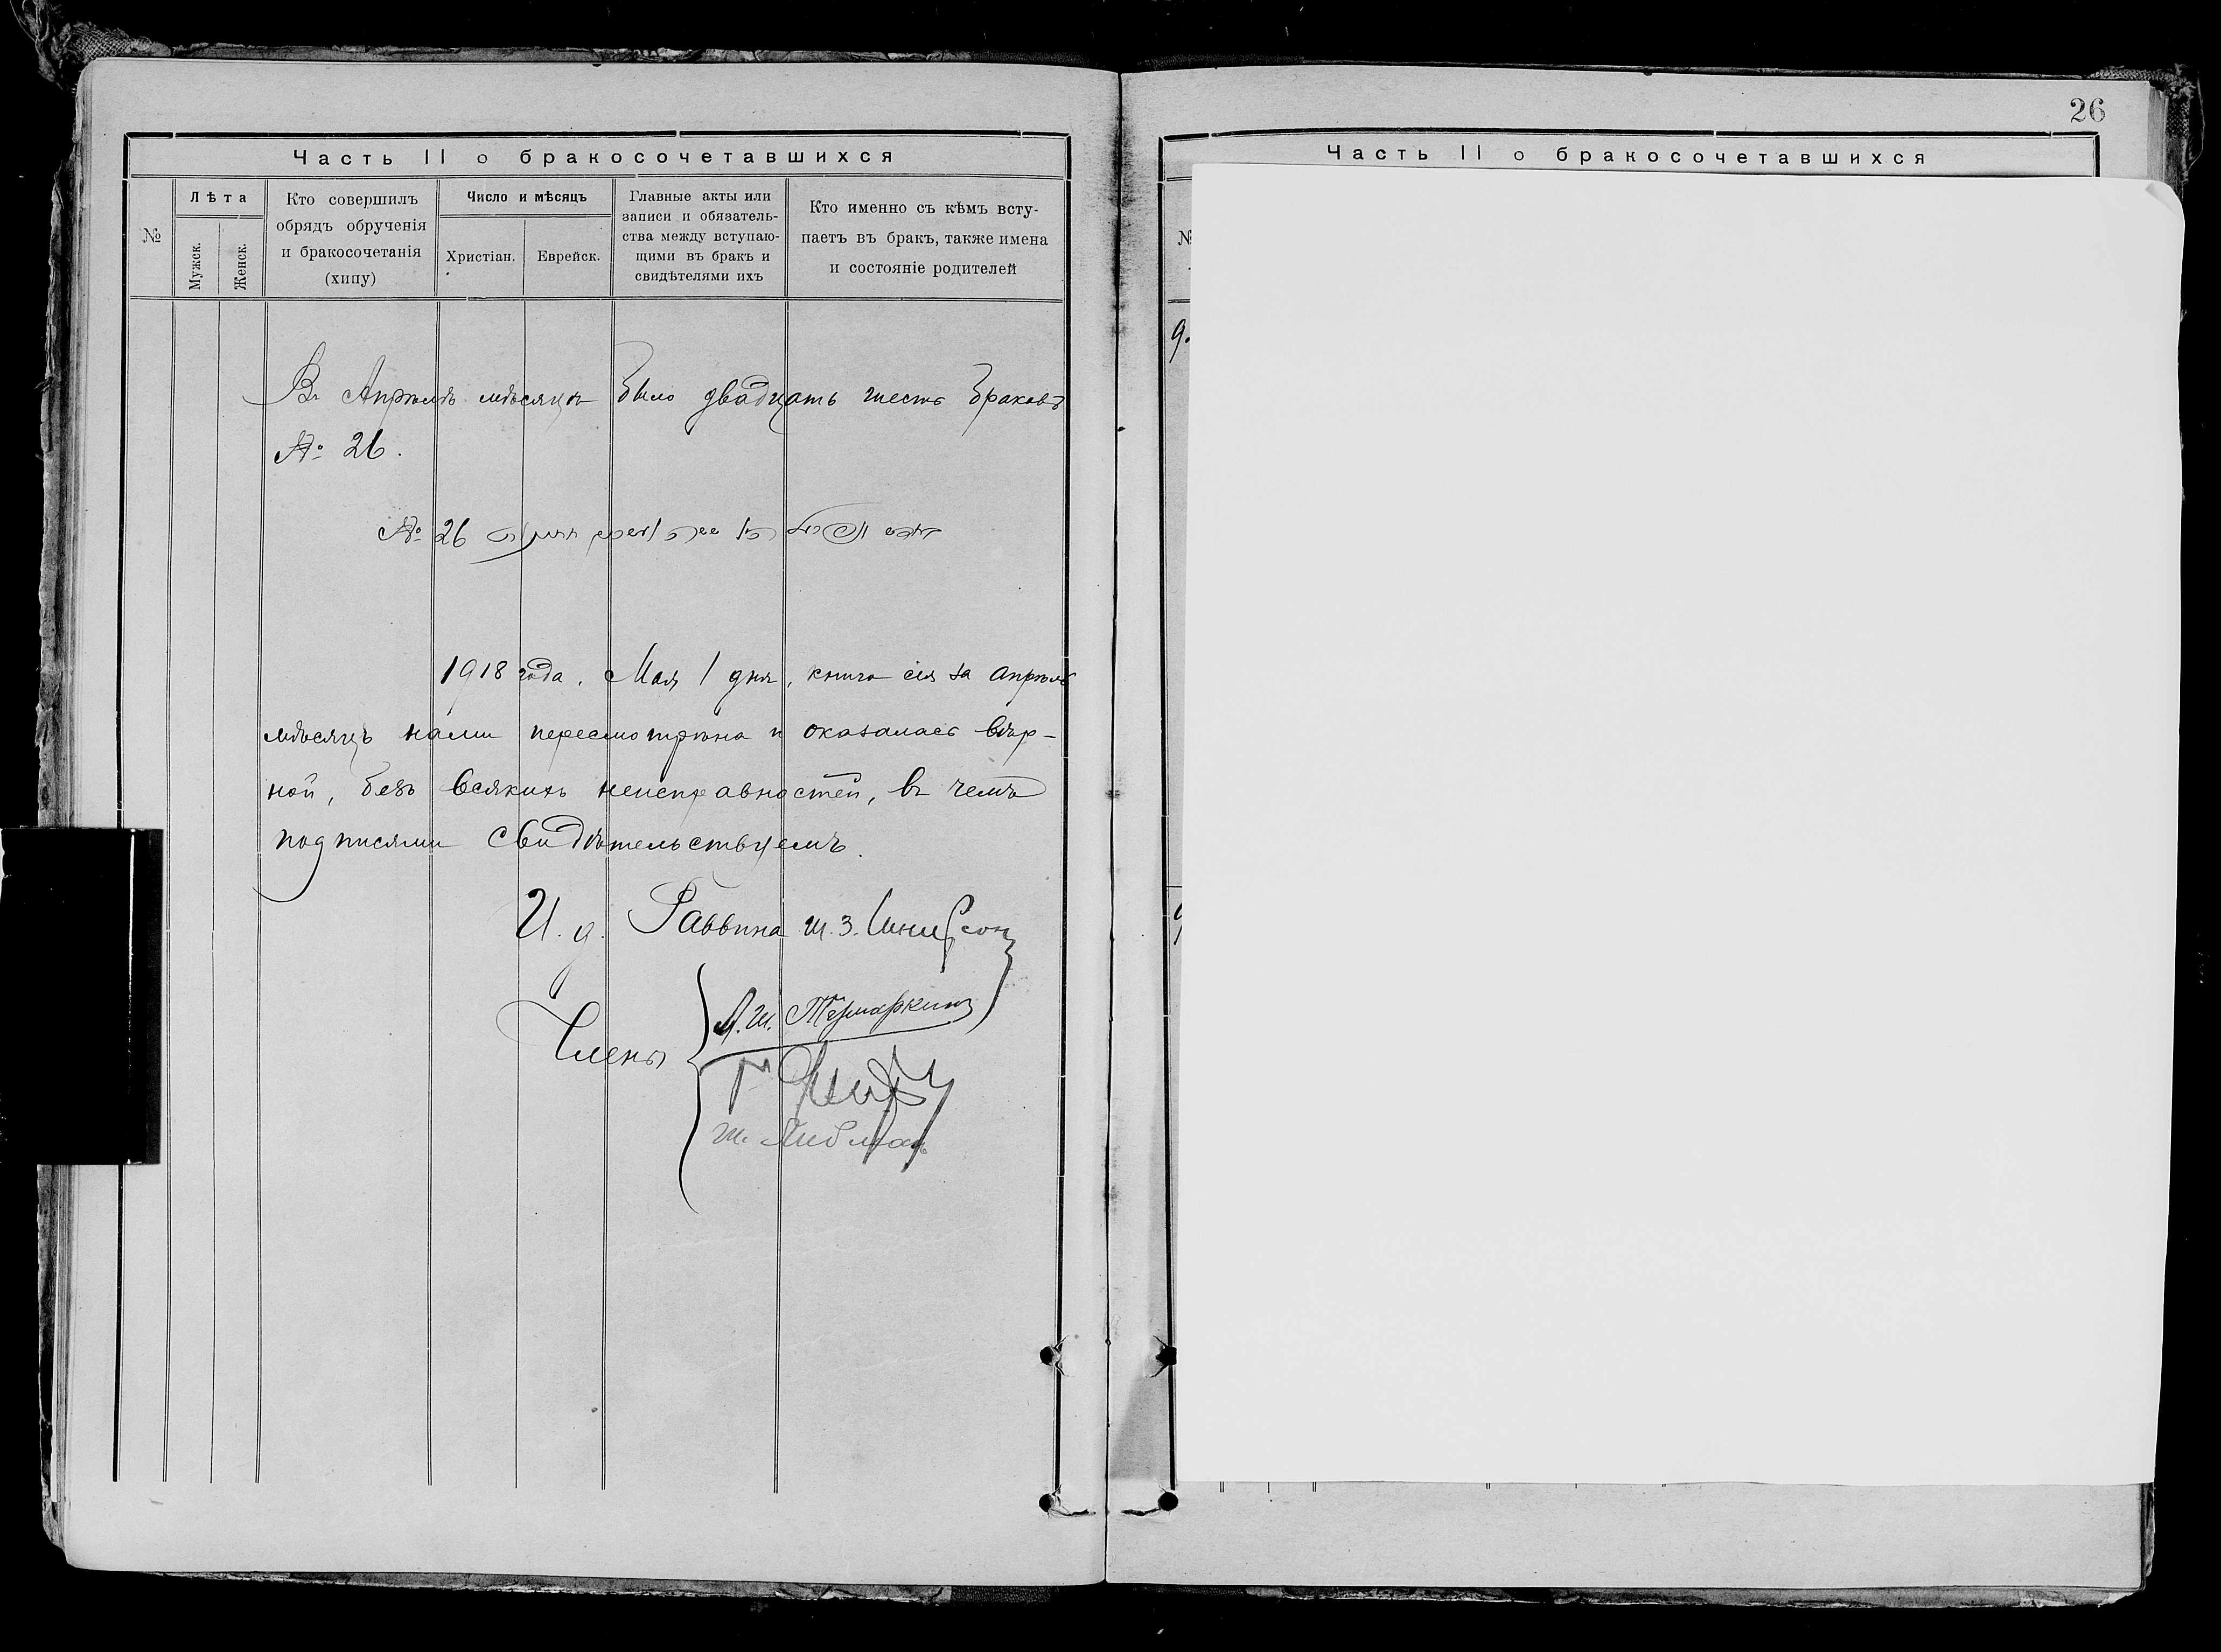 Часть II о бракосочетавшихся
№
Лѣта
Мужск.
Женск.
Кто совершилъ
обрядъ обрученія
и бракосочетанія
(хипу)
Число и мѣсяцъ
Христіан.
Еврейск.
Главные акты или
записи и обязатель-
ства между вступаю-
щими въ бракъ и
свидѣтелями ихъ
Кто именно съ кѣмъ всту-
паетъ въ бракъ, также имена
и состояніе родителей
Въ Апрѣлѣ мѣсяцѣ было двадцать шесть браковъ
№ 26.
№ 26
1918 года. Мая 1 дня, книга сія за апрѣль
мѣсяцъ нами пересмотрѣна и оказалась вѣр-
ной, безъ всякихъ неисправностей, въ чемъ
подписями свидѣтельствуемъ.
И. д. Раввина Ш. З. Шнеерсонъ
Члены
Ш. Либманъ
26
Часть II о бракосочетавшихся
№
9.